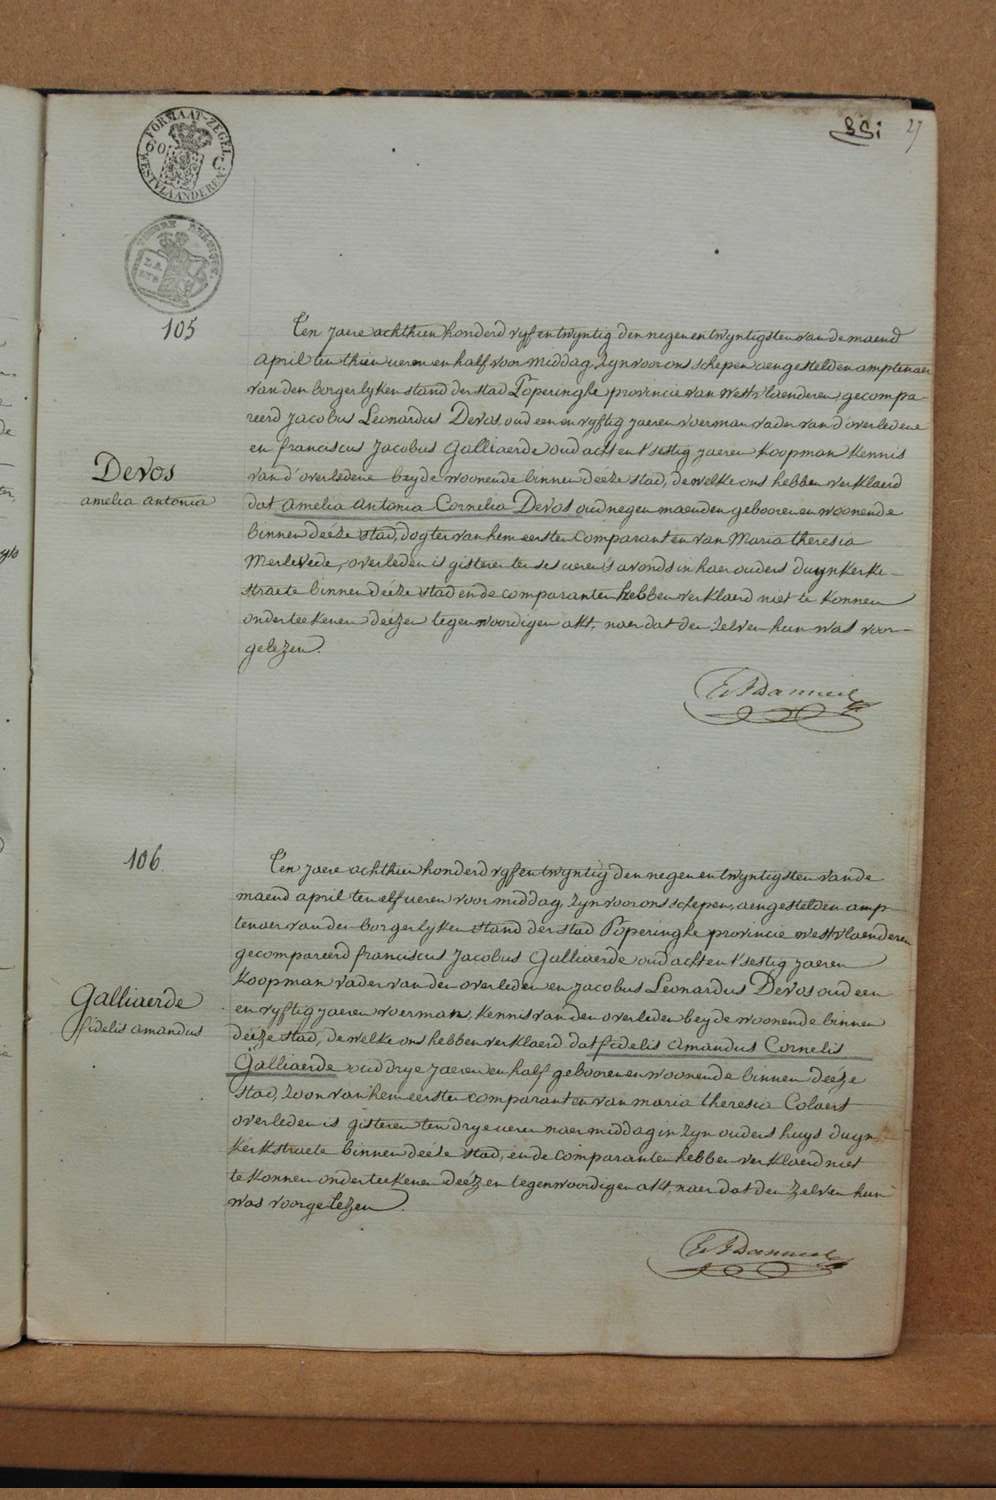 FORMAAT-ZEGEL
50 C
WESTVLAANDEREN
27
105
Ten jaere achthien honderd vyf en twyntig den negen en twyntigsten van de maend
april ten thien ueren en half voor middag, zyn voor ons schepen aengestelden amptenaer
van den borgerlyken stand der stad Poperinghe provincie van west vlaenderen gecompa-
reerd Jacobus Leonardus Devos, oud een en vyftig jaeren voerman vader van d'overledene
en franciscus Jacobus Galliaerde oud acht en t'sestig jaeren koopman kennis
van d'overledene beyde woonende binnen deéze stad, dewelke ons hebben verklaerd
Devos
amelia antonia
dat amelia antonia Cornelia Devos oud negen maenden gebooren en woonende
binnen deéze stad, dogter van hem eersten comparant en van Maria theresia
Merlevede, overleden is gisteren ten ses ueren s'avonds in haer ouders duynkerke-
straete binnen deéze stad en de comparanten hebben verklaerd niet te konnen
onderteekenen deézen tegenwoordigen akt, naer dat den zelven hun was voor-
gelezen.
106
Ten jaere achthien honderd vyf en twyntig den negen en twyntigsten van de
maend april ten elf ueren voor middag, zyn voor ons schepen, aengestelden amp-
tenaer van den borgerlyken stand der stad Poperinghe provincie westvlaenderen
gecompareerd franciscus Jacobus Galliaerde oud acht en t'sestig jaeren
koopman vader van den overleden en jacobus Leonardus Devos oud een
en vyftig jaeren voerman, kennis van den overleden beyde woonende binnen
Galliaerde
fidelis amandus
deéze stad, dewelke ons hebben verklaerd dat fidelis amandus Cornelis
Galliaerde oud drye jaeren en half gebooren en woonende binnen deéze
stad, zoon van hem eersten comparant en van maria theresia Colaert
overleden is gisteren ten drye ueren naermiddag in zyn ouders huys duyn-
kerkstraete binnen deése stad, en de comparanten hebben verklaerd niet
te konnen onderteekenen deézen tegenwoordigen akt, naer dat den zelven hun
was voorgelezen.